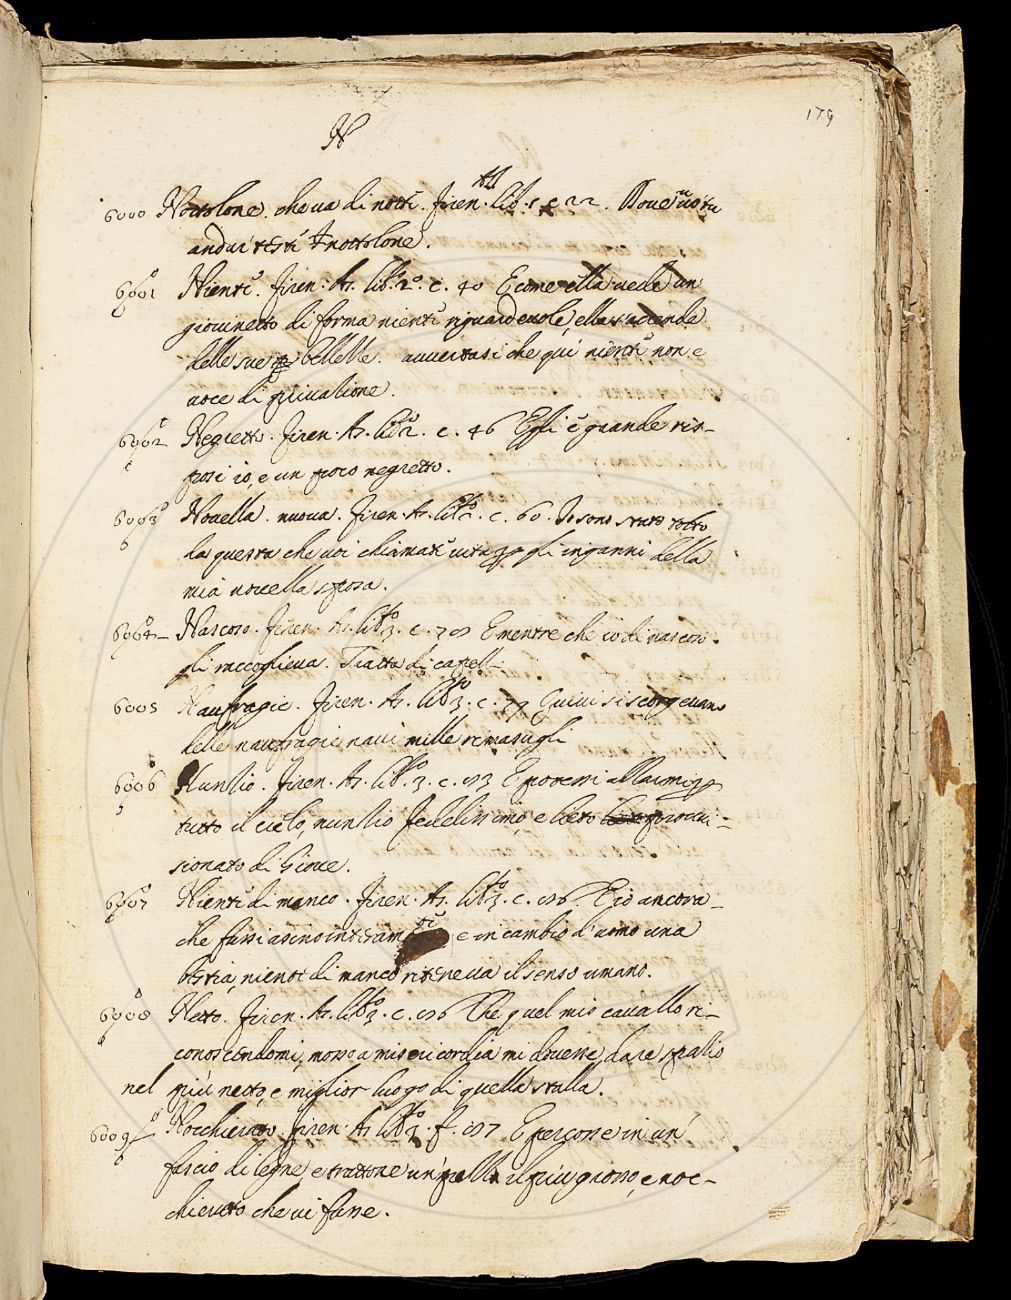 179
N
6000 Nottolone. che va di notte. Firen. As. lib. 1 c. 22. Dove vuo tu
andar testé Nottolone.
6001 Niente. Firen. As. lib. 2. c. 40 E come ella vede un
giovinetto di forma niente riguardevole, ella s'accende
delle sue bellezze. avvertasi che qui niente non e
voce di privazione.
6002 Negretto. Firen. As. lib. 2. c. 46 Egli è grande ris-
posi io, e un poco negretto.
6003 Novella. nuova. Firen. As. lib. 2. c. 60. Io sono stato tolto
da questa che voi chiamate vita gli inganni della
mia novella sposa.
6004 Nascoso. Firen. As. lib. 3. c. E mentre che io di nascoso
gli raccoglieva. Tratta di capelli
6005 Naufragie. Firen. As. lib. 3. c. 79 Quivi si scorgevano
delle naufragie navi mille rimasugli
6006 Nunzio. Firen. As. lib. 3. c. E
tutto il cielo, nunzio fedelissimo, e lieto provi-
sionato di Giove.
6007 Niente di manco. Firen. As. lib. 3. c. Ed io ancora-
che fussi asino interamente e in cambio d'uomo una
bestia, niente di manco riteneva il senso umano.
6008 Netto. Firen. As. lib. 3. c. Che quel mio cavallo ri-
conoscendomi, mosso a misericordia mi dovesse dare spazio
nel più netto, e miglior luogo di quella stalla.
6009 Nocchieruto. Firen. As. lib. 3. E percosse in un
fascio di legne, e trattone un' il più grosso, e noc-
chieruto che vi fusse.